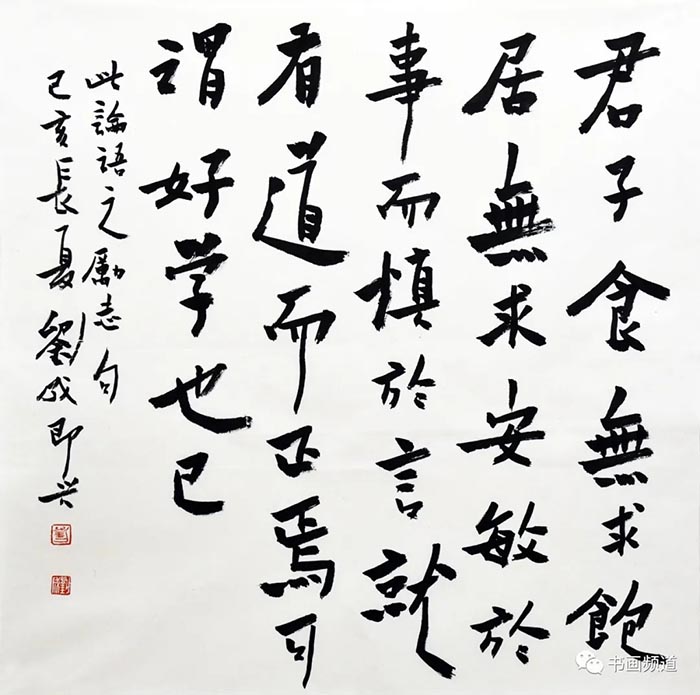 君子食無求飽
居無求安敏於
事而慎於言就
有道而正焉可
謂好学也已
此論語之勵志句
己亥長夏劉成即兴
书画频道